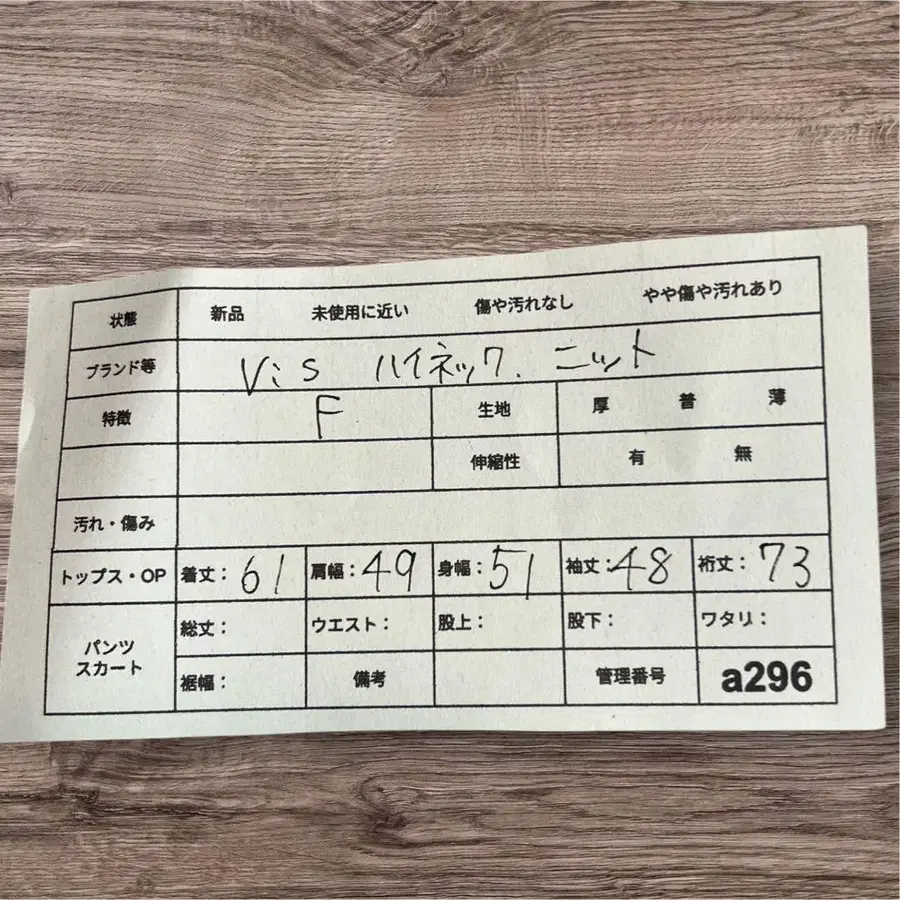 状態 新品 未使用に近い 傷や汚れなし やや傷や汚れあり
ブランド等 Vis ハイネック. ニット
特徴 F 生地 厚 普 薄
伸縮性 有 無
汚れ・傷み
トップス・OP 着丈：61 肩幅：49 身幅：51 袖丈：48 裄丈：73
パンツ スカート 総丈： ウエスト： 股上： 股下： ワタリ：
裾幅： 備考 管理番号 a296